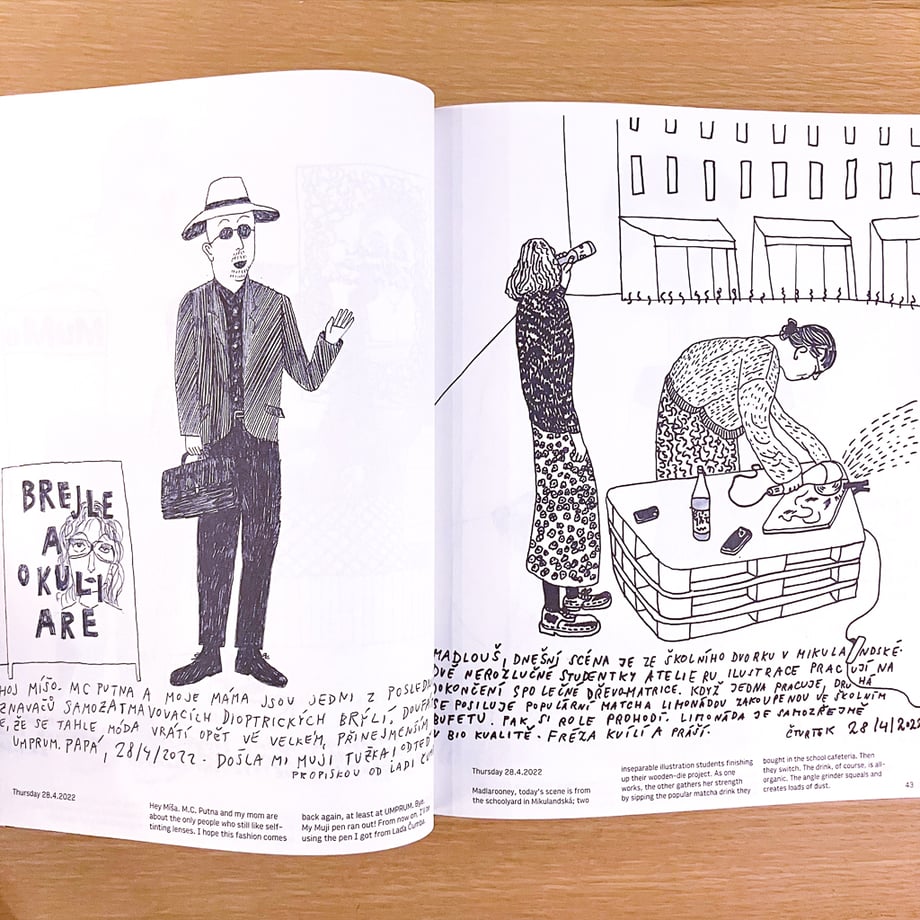 BREJLE
A
OKULI
ARE
HOJ MÍŠO. MC PUTNA A MOJE MÁMA JSOU JEDNI Z POSLEDN
ZNAVAČŮ SAMOZATMAVOVACÍCH DIOPTRICKÝCH BRÝLÍ. DOUFÁM
E, ŽE SE TAHLE MÓDA VRÁTÍ OPĚT VE VELKÉM, PŘINEJMENŠÍM
UMPRUM. PAPÁ, 28/4/2022. DOŠLA MI MUJI TUŽKA! ODTEĎ
PROPISKOU OD LADI ČUM
Thursday 28.4.2022
Hey Míša. M.C. Putna and my mom are
about the only people who still like self-
tinting lenses. I hope this fashion comes
back again, at least at UMPRUM. Bye.
My Muji pen ran out! From now on, I'll be
using the pen I got from Laďa Čumba.
MADLOUŠ, DNEŠNÍ SCÉNA JE ZE ŠKOLNÍHO DVORKU V MIKULANDSKÉ.
DVĚ NEROZLUČNÉ STUDENTKY ATELIERU ILUSTRACE PRACUJÍ NA
DOKONČENÍ SPOLEČNÉ DŘEVOMATRICE. KDYŽ JEDNA PRACUJE, DRUHÁ
SE POSILUJE POPULÁRNÍ MATCHA LIMONÁDOU ZAKOUPENOU VE ŠKOLNÍM
BUFETU. PAK SI ROLE PROHODÍ. LIMONÁDA JE SAMOZŘEJMĚ
V BIO KVALITĚ. FRÉZA KVÍLÍ A PRÁŠÍ. ČTVRTEK 28/4/2022
Thursday 28.4.2022
Madlarooney, today's scene is from
the schoolyard in Mikulandská; two
inseparable illustration students finishing
up their wooden-die project. As one
works, the other gathers her strength
by sipping the popular matcha drink they
bought in the school cafeteria. Then
they switch. The drink, of course, is all-
organic. The angle grinder squeals and
creates loads of dust.
43